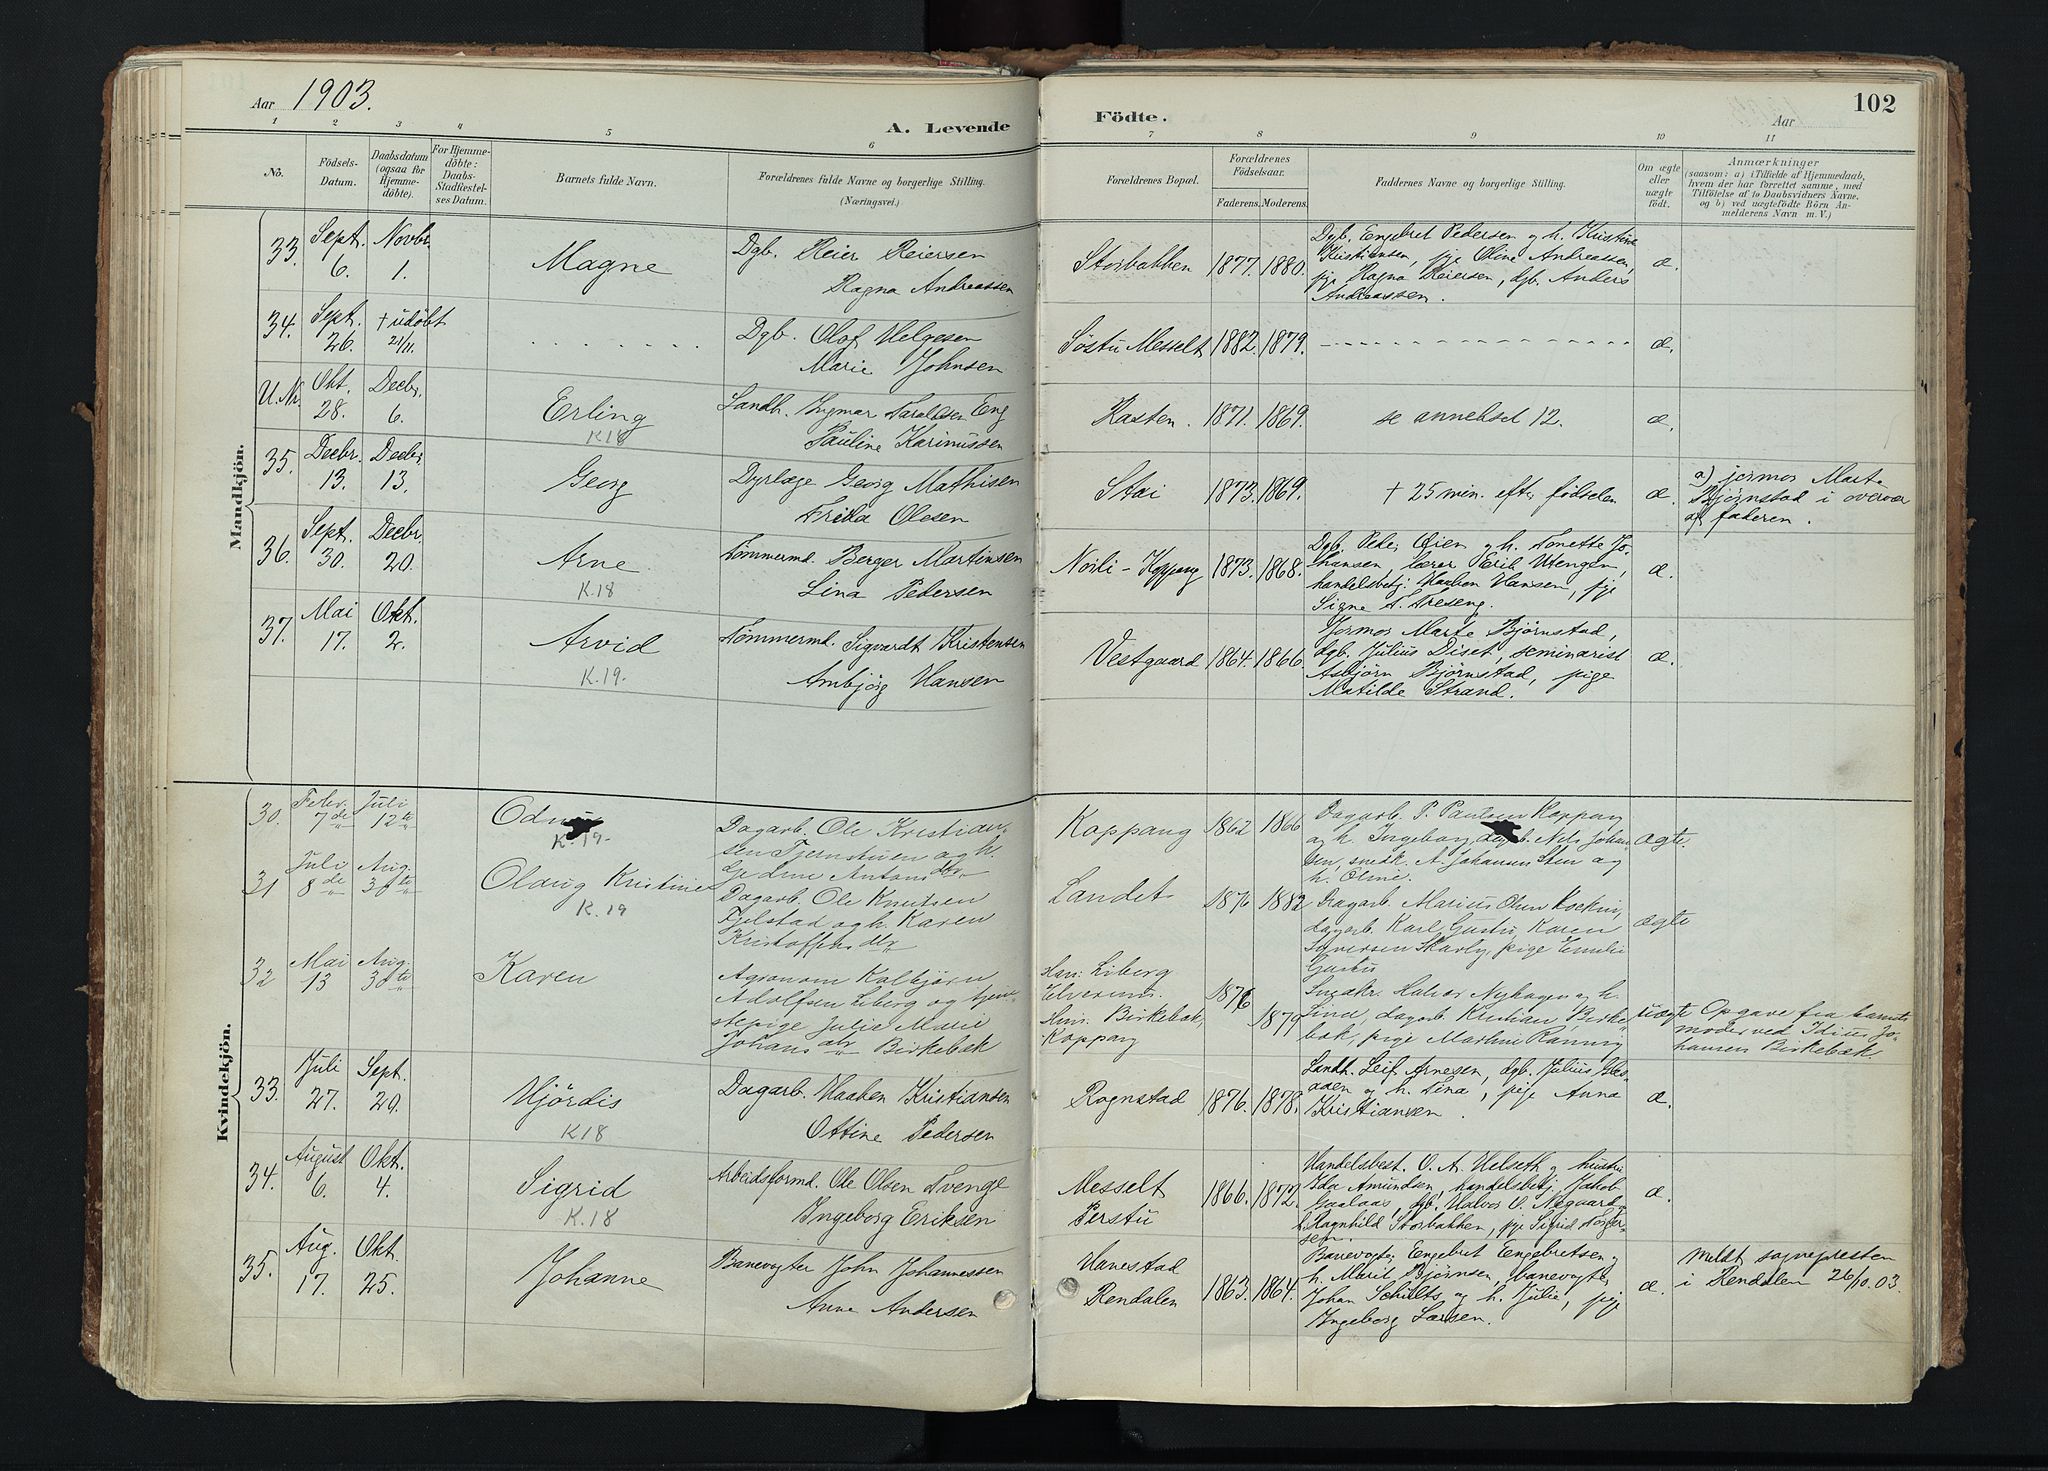 Aar 1903.
A. Levende
Födte.
Aar
102
1 2 3 4 5 6 7 8 9 10 11
No.
Födsels-Datum.
Daabsdatum (ogsaa for Hjemmedöbte).
For Hjemmedöbte: Daabs-Stadfæstelses Datum.
Barnets fulde Navn.
Forældrenes fulde Navne og borgerlige Stilling.
(Næringsvei.)
Forældrenes Bopæl.
Forældrenes Födselsaar.
Faderens. Moderens.
Faddernes Navne og borgerlige Stilling.
Om ægte eller uægte födt.
Anmærkninger
(saasom: a) i Tilfælde af Hjemmedaab, hvem der har forrettet samme, med Tilföielse af to Daabsvidners Navne, og b) ved uægtefödte Börn Anmelderens Navn m. V.)
Mandkjön.
33. Sept. 6. Novbr. 1. Magne Dgb. Reier Reiersen
Ragna Andreassen
Storbakken 1877. 1880. Dgb. Engebret Pedersen og h. Kristine
Kristiansen, pge Oline Andreassen,
pge Ragna Reiersen, dgb. Anders
Andreassen. æ.
34. Sept. 26. + udøbt 21/11. Dgb. Olof Helgesen
Marie Johnsen
Søstu Messelt 1882. 1879. æ.
U. Nr. Okt. 28. Decbr. 6. Erling K18 Landh. Ingmar Taraldsen Eng
Pauline Karinussen
Hasten. 1871. 1869. se annekset 12. æ.
35. Decbr. 13. Decbr. 13. Georg Dyrlæge Georg Mathisen
Frida Olesen
Stai 1873. 1869. + 25 min. efter fødselen æ. a) jormor Marte
Bjørnstad i overvær
af faderen.
36. Sept. 30. Decbr. 20. Arne K.18 Tømmermd. Berger Martinsen
Lina Pedersen
Nordli - Koppang 1873. 1868. Dgb. Peder Øien og h. Tonette Jo-
hansen, lærer Erik Utengen,
handelsbetj. Haakon Hansen, pge
Signe T. Treseng. æ.
37. Mai 17. Okt. 2. Arvid K.19. Tømmermd. Sigvardt Kristensen
Ambjørg Hansen
Vestgaard 1864. 1866. Jormor Marte Bjørnstad,
dgb. Julius Diset, seminarist
Asbjørn Bjørnstad, pige
Matilde Strand. æ.
Kvindekjön.
30. Febr. 7de Juli 12te K.19. Dagarb. Ole Kristian-
sen Tjernstuen og h.
Gedine Antonsdtr
Koppang 1862 1866 Dagarb. P. Paulsen Koppang
og h. Ingeborg, dagarb. Nils Johan-
sen, snedk. A. Johansen Sten og
h. Oline. ægte.
31 Juli 8de Aug. 30te Olaug Kristine K.19 Dagarb. Ole Knutsen
Fjelstad og h. Karen
Kristoffersdtr
Landet 1876 1882 Dagarb. Marius Olsen
dagarb. Karl Gustu Karen
Iversen pige Emilie
Gustu ægte
32 Mai 13 Aug. 30te Karen Agronom Kolbjørn
Adolfsen Liberg og tjene-
stepige Julie Marie
Johansdtr Birkebæk
Han: Liberg
Elverum.
Hun: Birkebæk,
Koppang
1876 1879 Snedkr. Halvor Nyhagen og h.
Lina, dagarb Kristian Birke-
bæk, pige Martine Rønning uægte Opgave fra barnets
moder ved Idius Jo-
hansen Birkebæk.
33. Juli 27. Sept. 20. Hjördis K18 Dagarb. Haaken Kristiansen
Ottine Pedersen
Rognstad 1876. 1878. Landh. Leif Arnesen, dgb. Julius
og h. Tina, pige Anna
Kristiansen. æ.
34. August 6. Okt. 4. Sigrid K.18 Arbeidsformd. Ole Olsen Tvenge
Ingeborg Eriksen
Messelt
Perstu
1866. 1872. Handelsbest. O. A. Helseth og hustru
Ida Amundsen, handelsbetj. Jakob
dgb. Halvor O. Nøgaard
h. Ragnhild Storbakken, pge Sigrid æ.
35. Aug. 17. Okt. 25. Johanne Banevogter John Johannessen
Anne Andersen
Hanestad
Rendalen
1863. 1864. Banevogter Engebret Engebretsen og
h. Marit Bjørnsen, banevogter
Johan Schults og h. Julie, pge
Ingeborg Larsen. æ. Meldt sognepresten
i Rendalen 26/10.03.